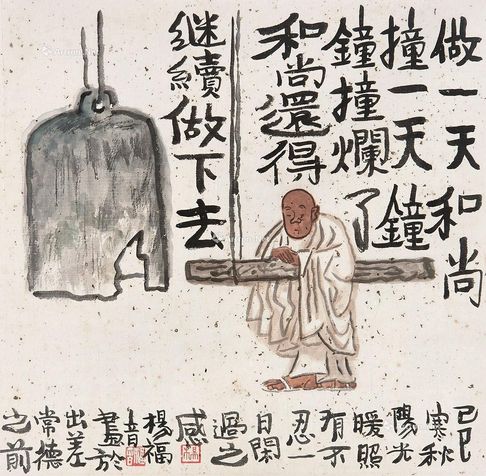 做一天和尚
撞一天鐘
鐘撞爛了
和尚還得
继續做下去
己巳
寒秋
陽光
暖照
有不
忍一
日閑
過之
感
楊福
音
畫於
出差
常德
之前